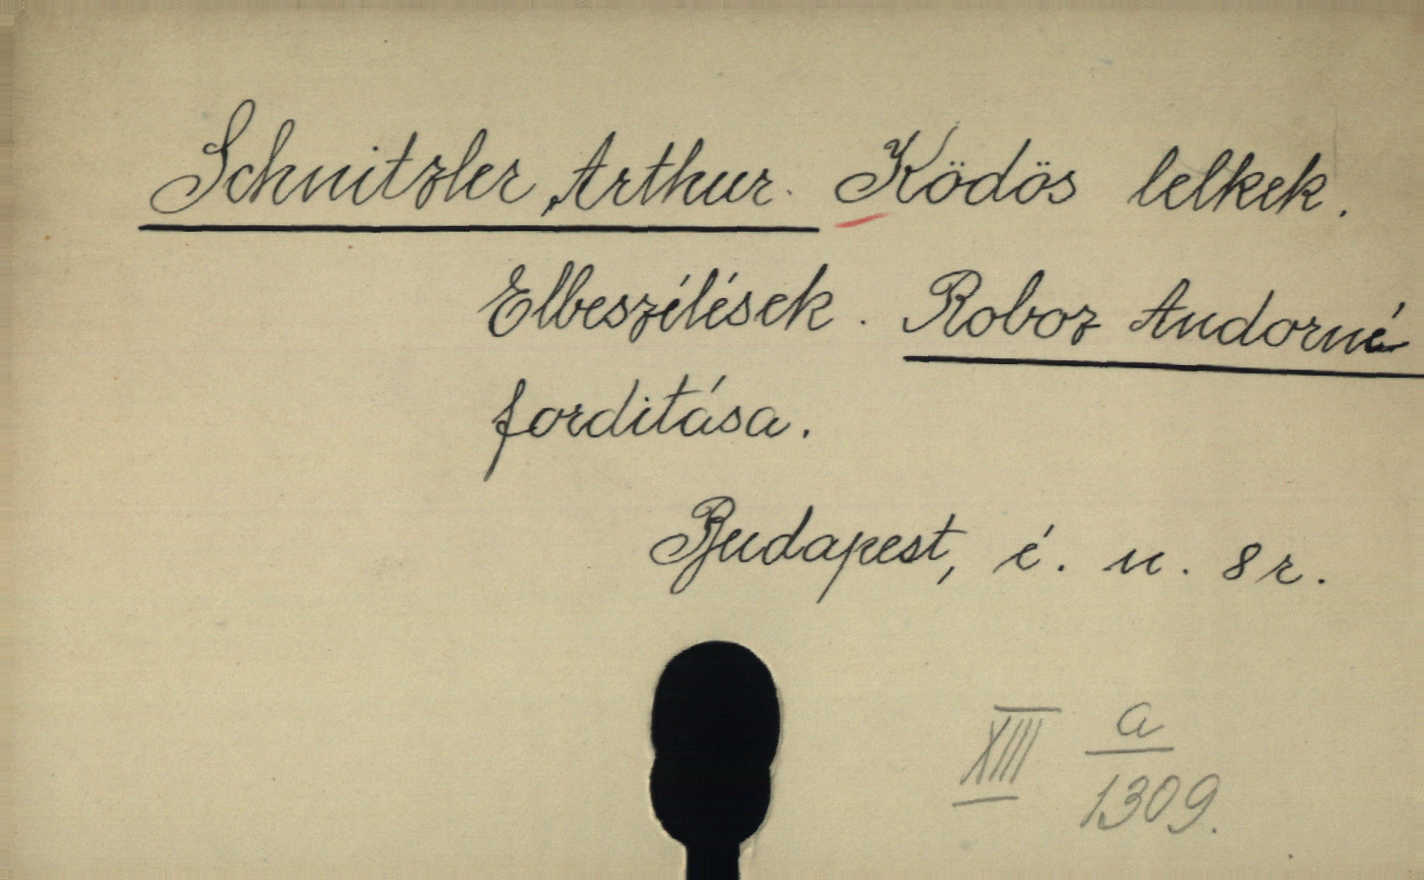 Schnitzler, Arthur. Ködös lelkek.
Elbeszélések. Roboz Andorné
forditása.
Budapest, é. n. 8 r.
XIII a
1309.